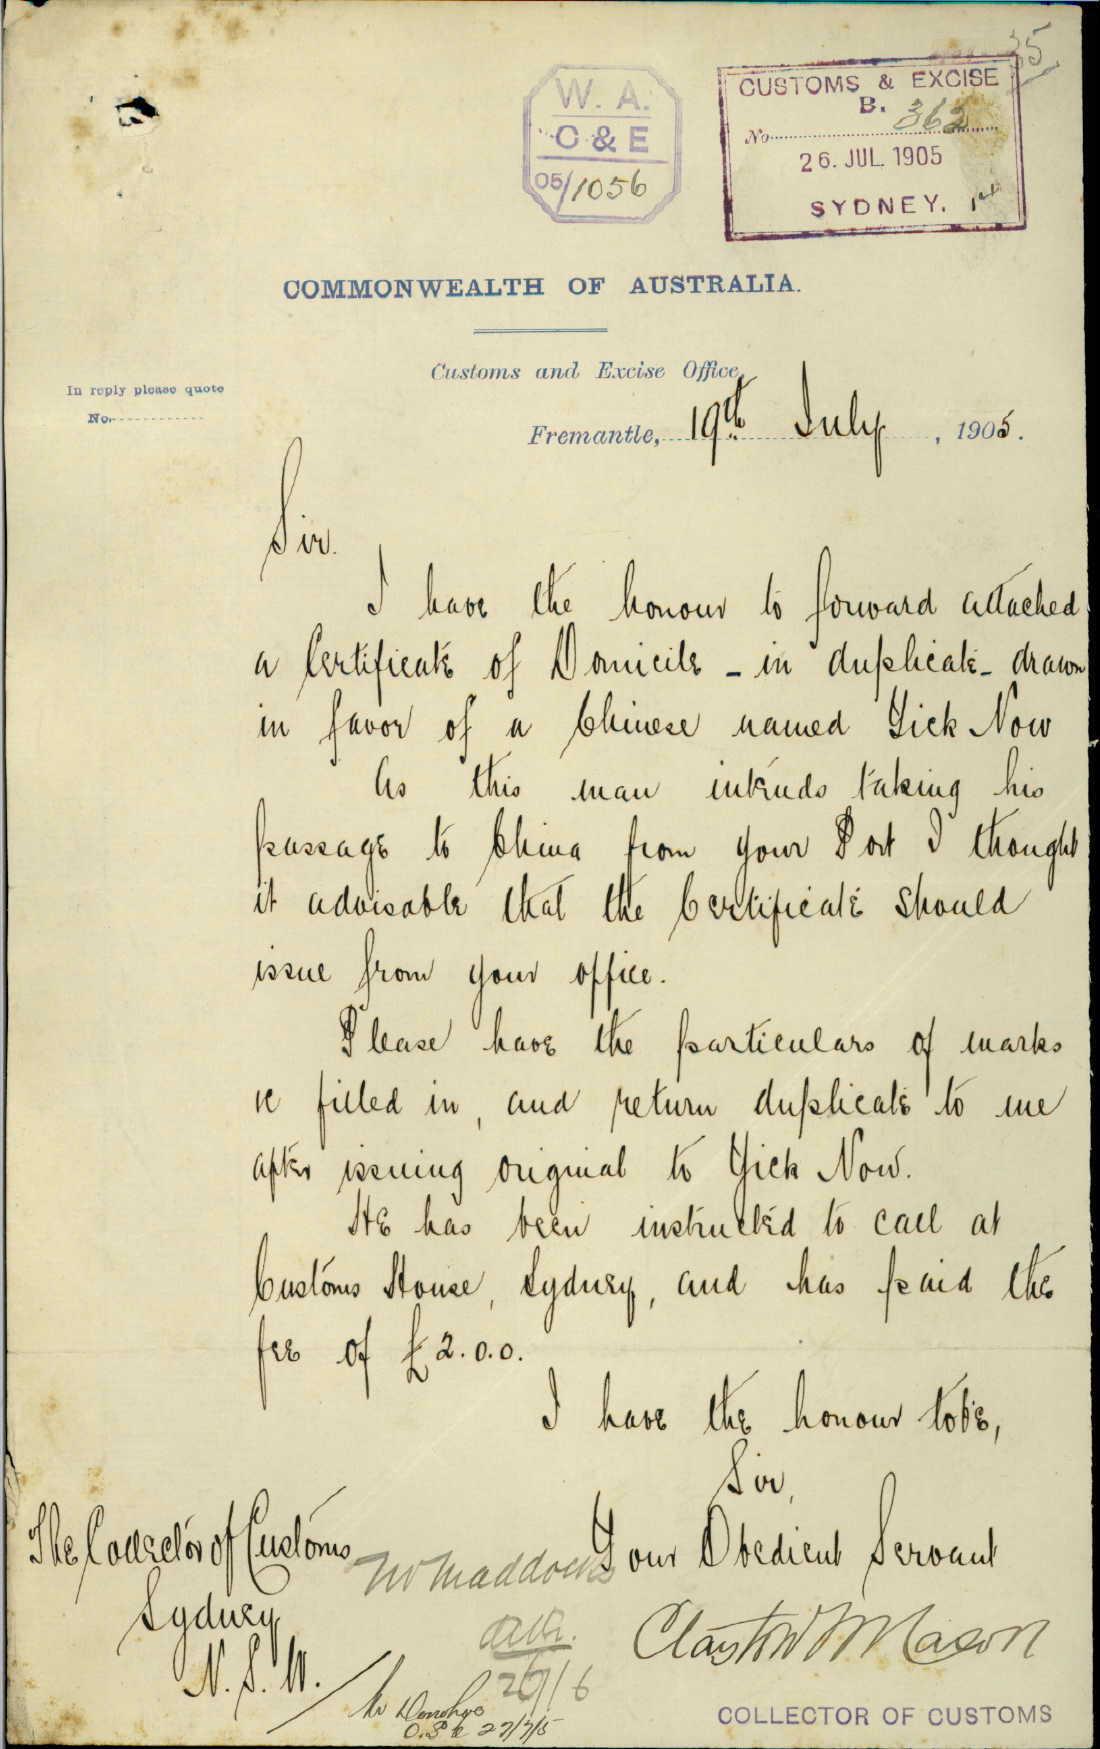 35
W. A.
C & E
05/1056
CUSTOMS & EXCISE
B.
No 362
26. JUL. 1905
SYDNEY.
COMMONWEALTH OF AUSTRALIA.
Customs and Excise Office,
In reply please quote
No.
Fremantle, 19th July, 1905.
Sir.
I have the honour to forward attached
a Certificate of Domicile - in duplicate - drawn
in favor of a Chinese named Yick Now
As this man intends taking his
passage to China from your Port I thought
it advisable that the Certificate should
issue from your office.
Please have the particulars of marks
&c filled in, and return duplicate to me
after issuing original to Yick Now.
He has been instructed to call at
Customs House, Sydney, and has paid the
fee of £2.0.0.
I have the honour to be,
Sir,
Your Obedient Servant
The Collector of Customs
Sydney
N. S. W.
Mr Maddocks
Clayton T Mason
COLLECTOR OF CUSTOMS
Mr Donohoe
27/7/5